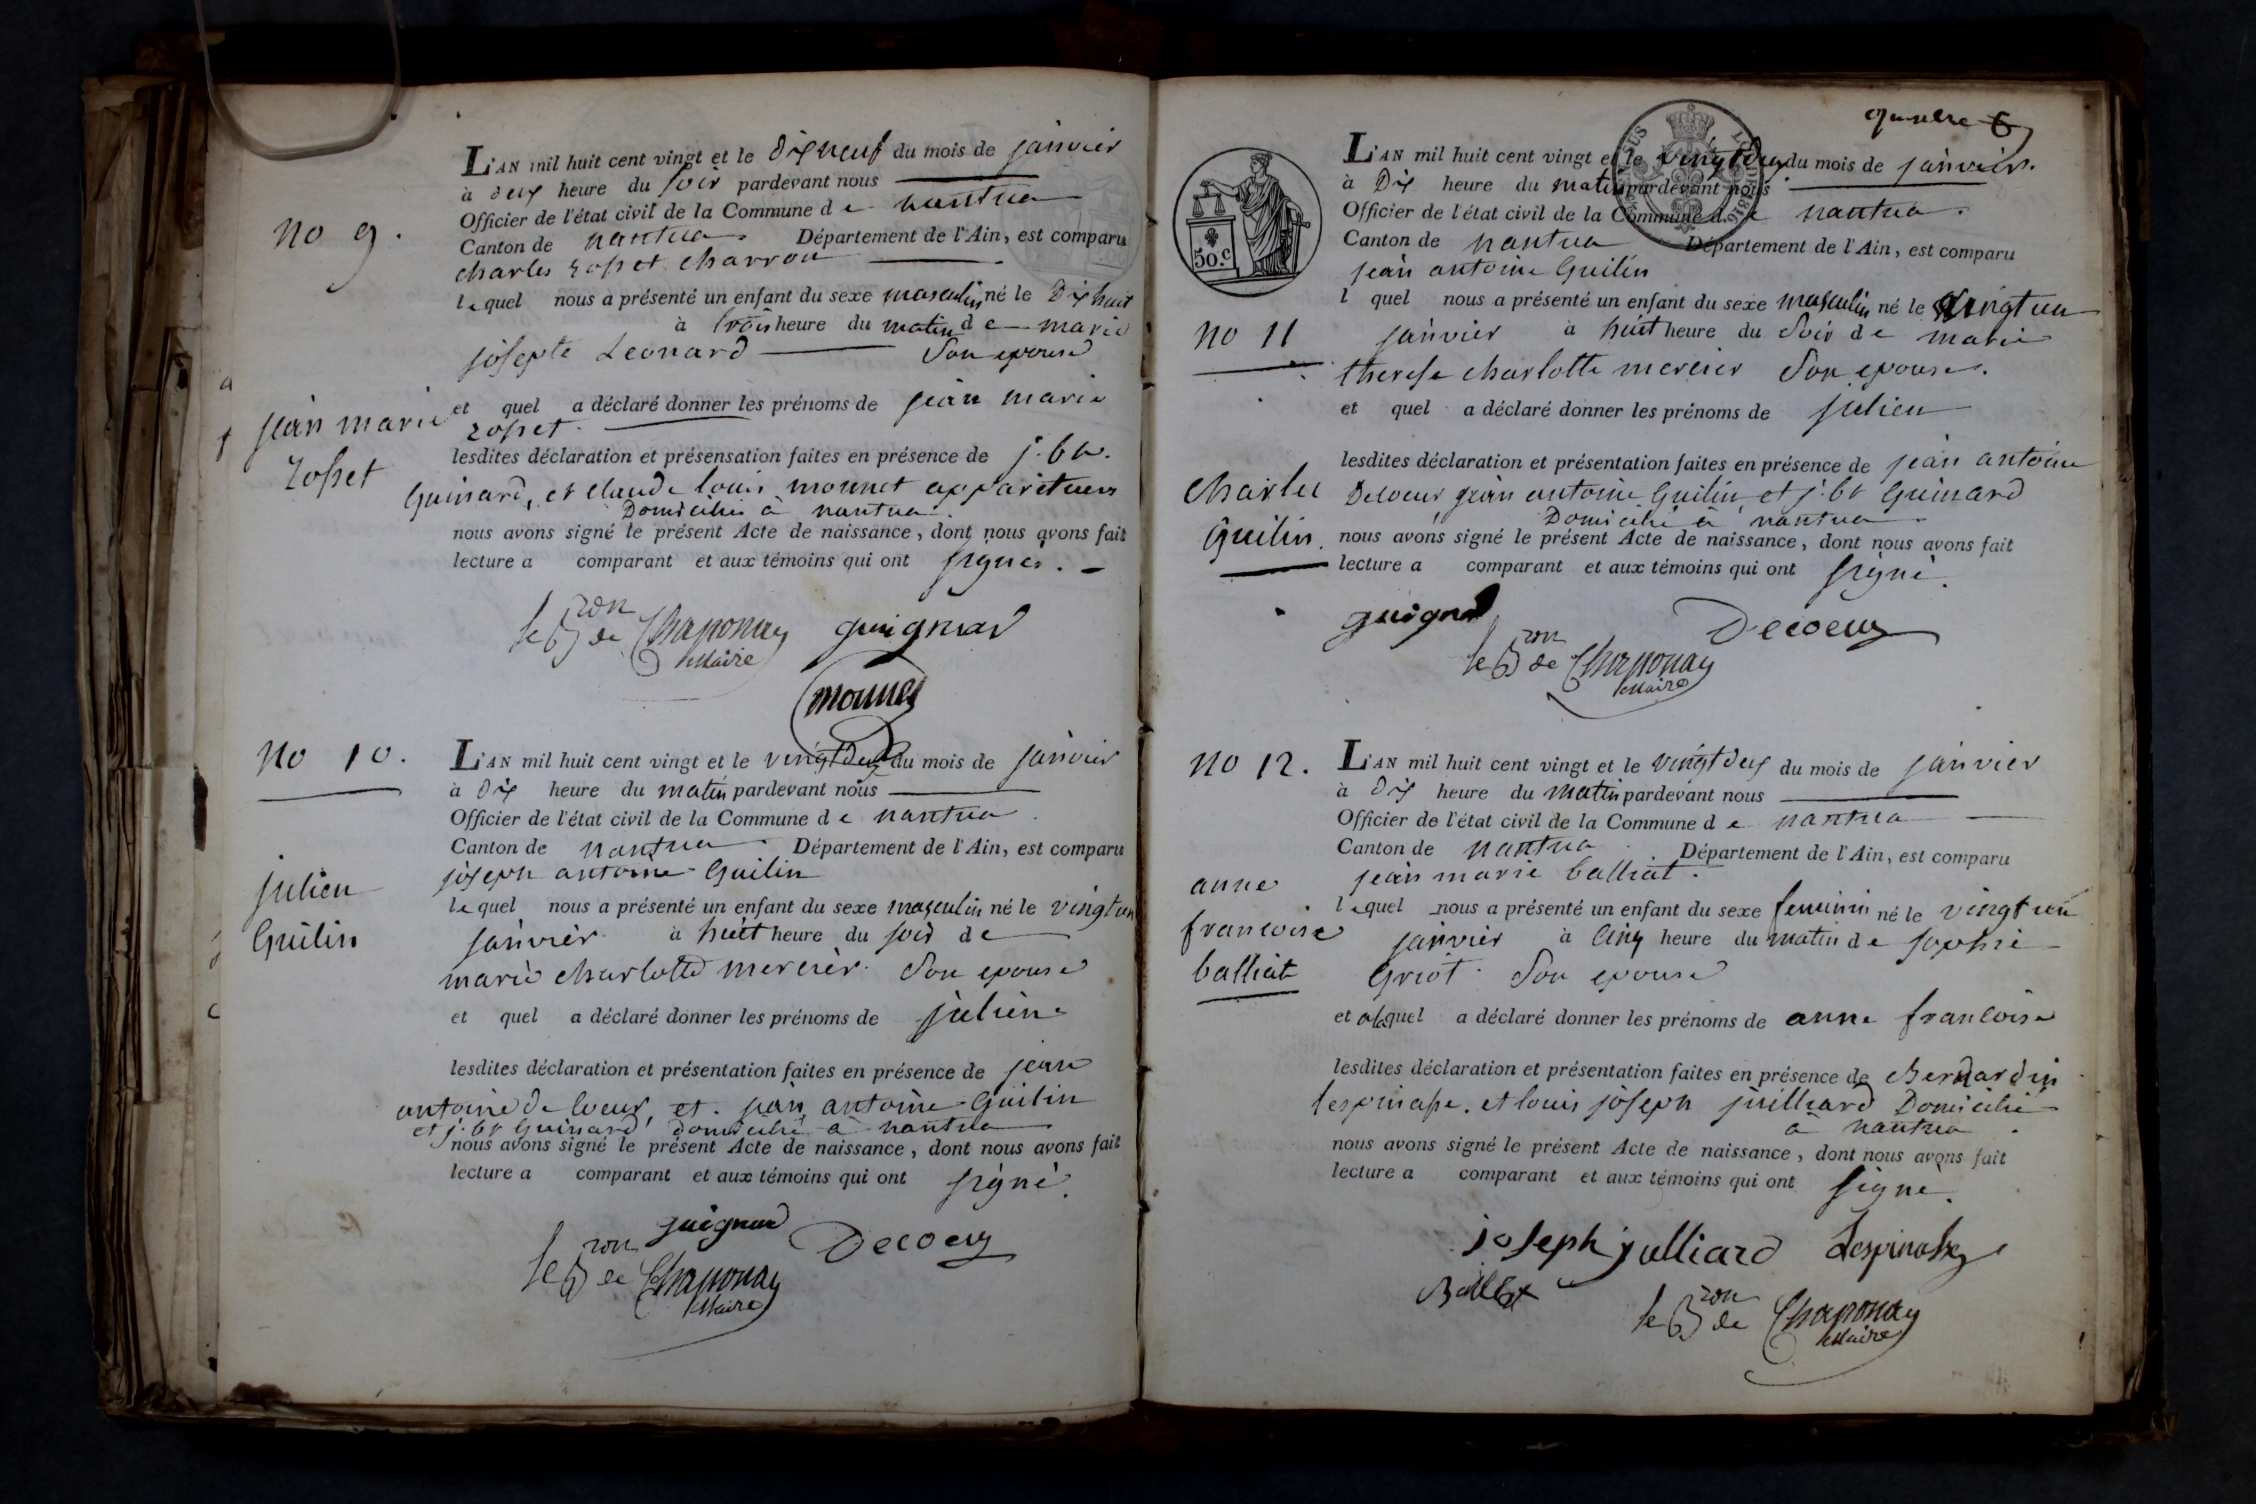 L'AN mil huit cent vingt et le dixneuf du mois de janvier
à deux heure du soir pardevant nous
Officier de l'état civil de la Commune de nantua
no 9.
Canton de nantua. Département de l'Ain, est comparu
charles zosset charron
lequel nous a présenté un enfant du sexe masculin né le Dixhuit
à trois heure du matin de marie
josepte Leonard Son epouse
et quel a déclaré donner les prénoms de jean marie
zosset.
jean marie
zosset
lesdites déclaration et présensation faites en présence de j. bte.
Guinard, et claude louis monnet appariteurs
Domiciliés à nantua.
nous avons signé le présent Acte de naissance, dont nous avons fait
lecture a comparant et aux témoins qui ont signés.
le Bron de Chaponay guignard
Maire
monnet
no 10.
L'AN mil huit cent vingt et le vingtdeux du mois de janvier
à dix heure du matin pardevant nous
Officier de l'état civil de la Commune de nantua
Canton de nantua. Département de l'Ain, est comparu
joseph antoine Guilin
julien
Guilin
lequel nous a présenté un enfant du sexe masculin né le vingtun
janvier à huit heure du soir de
marie charlotte mercier. Son epouse
et quel a déclaré donner les prénoms de julien
lesdites déclaration et présentation faites en présence de jean
antoine de Coeur, et. jean antoine Guilin
et j. bt Guinard domicilié a nantua
nous avons signé le présent Acte de naissance, dont nous avons fait
lecture a comparant et aux témoins qui ont signé.
guignard Decoeur
le Bron de Chaponay
Maire
6
L'AN mil huit cent vingt et le vingtdeux du mois de janvier.
à Dix heure du matin pardevant nous
Officier de l'état civil de la Commune de nantua.
Canton de nantua Département de l'Ain, est comparu
50.c
1816
jean antoine Guilin
l quel nous a présenté un enfant du sexe masculin né le vingtun
no 11
janvier à huit heure du Soir de marie
therese charlotte mercier Son epouse.
et quel a déclaré donner les prénoms de julien
lesdites déclaration et présentation faites en présence de jean antoine
charles
Guilin.
Decoeur jean antoine Guilin et j. bt Guinard
Domicilié à nantua
nous avons signé le présent Acte de naissance, dont nous avons fait
lecture a comparant et aux témoins qui ont signé.
guignard Decoeur
le Bron de Chaponay
Maire
no 12.
L'AN mil huit cent vingt et le vingtdeux du mois de janvier
à dix heure du matin pardevant nous
Officier de l'état civil de la Commune de nantua
Canton de nantua. Département de l'Ain, est comparu
jean marie balliat.
anne
francoise
balliat
lequel nous a présenté un enfant du sexe feminin né le vingtun
janvier à Cinq heure du matin de sophie
Griot. Son epouse
et alequel a déclaré donner les prénoms de anne francoise
lesdites déclaration et présentation faites en présence de Bernardin
lespinasse. et louis joseph juilliard Domicilié
à nantua.
nous avons signé le présent Acte de naissance, dont nous avons fait
lecture a comparant et aux témoins qui ont signé.
joseph julliard Lespinasse
le Bron de Chaponay
Maire